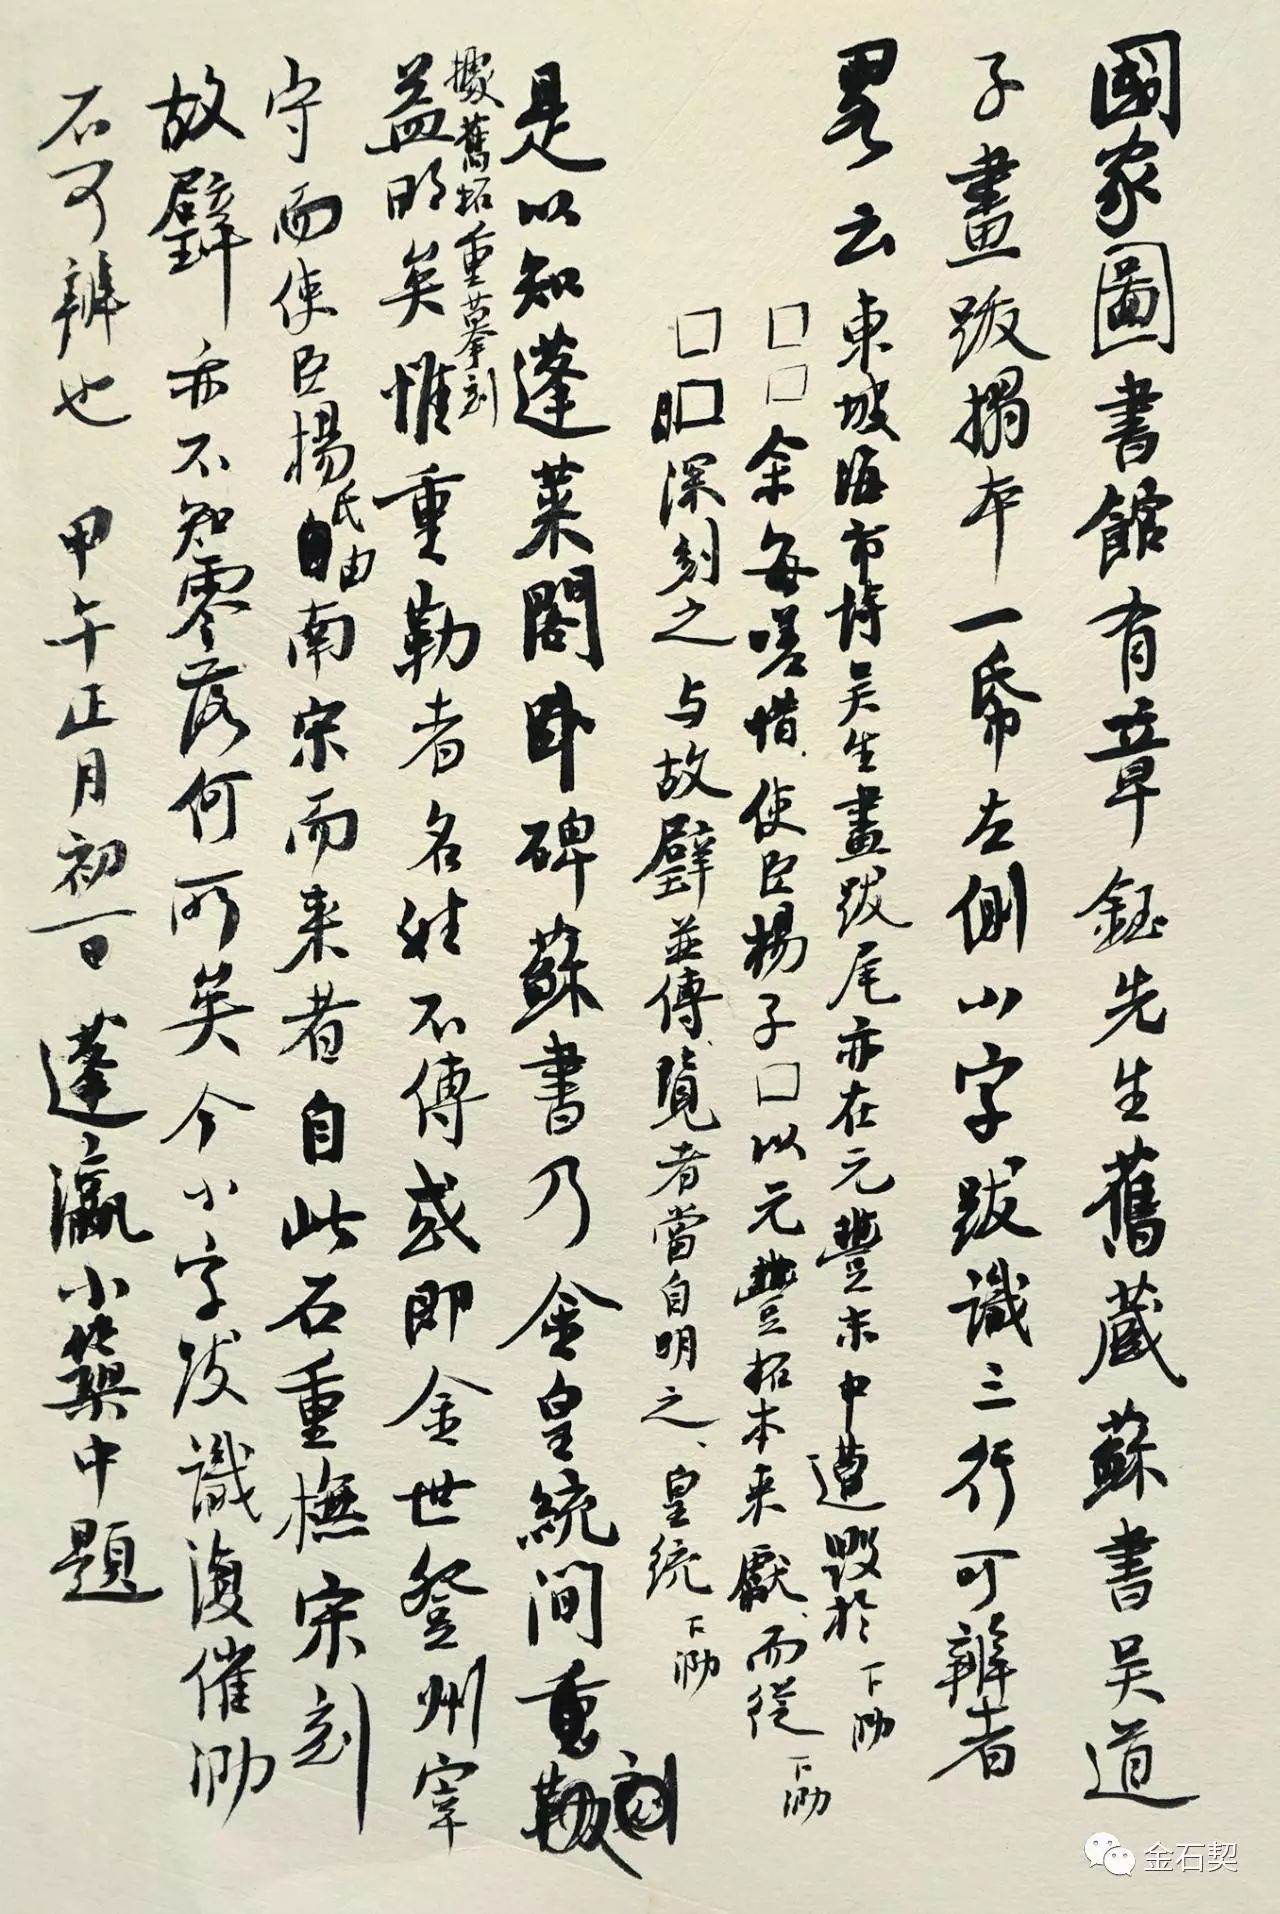 國家圖書館有章鈺先生舊蔵蘇書吴道
子畫跋搨本一帋左側小字跋識三行可辨者
畧云東坡海市詩吴生畫跋尾亦在元豐末中遭毁於下泐
□□余每嗟惜、使臣楊子□以元豐拓本来獻、而從下泐
□□深刻之与故壁並傳、覧者當自明之、皇統下泐
是以知蓬莱閣卧碑蘇書乃金皇統间重刻
據舊拓重摹刻
益明矣惟重勒者名姓不傳或即金世登州宰
守而使臣楊氏由南宋而来者自此石重橅宋刻
故壁亦不知零落何所矣今小字跋識復催泐
石可辨也 甲午正月初一日 蓬瀛小築中題
金石契